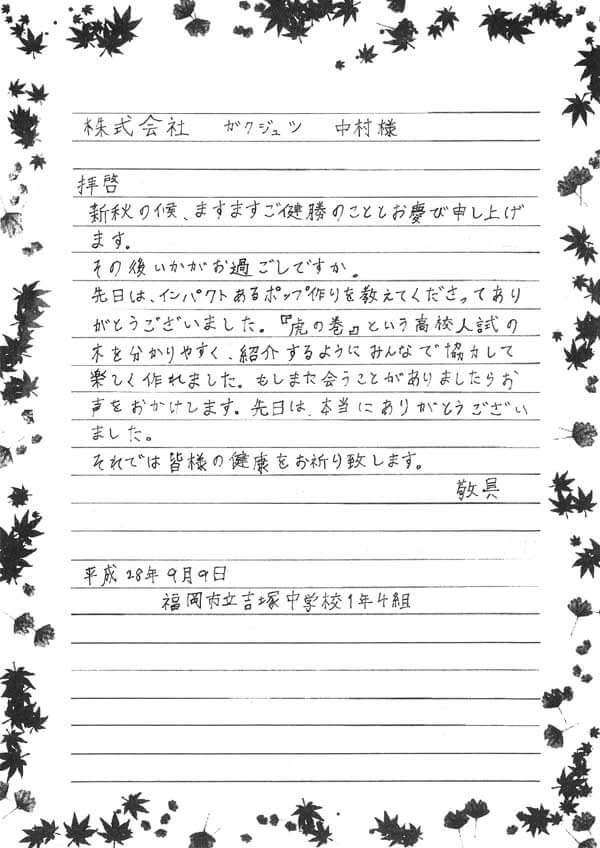 株式会社 ガクジュツ 中村様
拝啓
新秋の候、ますますご健勝のこととお慶び申し上げ
ます。
その後いかがお過ごしですか。
先日は、インパクトあるポップ作りを教えてくださってあり
がとうございました。『虎の巻』という高校入試の
本を分かりやすく、紹介するようにみんなで協力して
楽しく作れました。もしまた会うことがありましたらお
声をおかけします。先日は、本当にありがとうござい
ました。
それでは皆様の健康をお祈り致します。
敬具
平成28年9月9日
福岡市立吉塚中学校1年4組